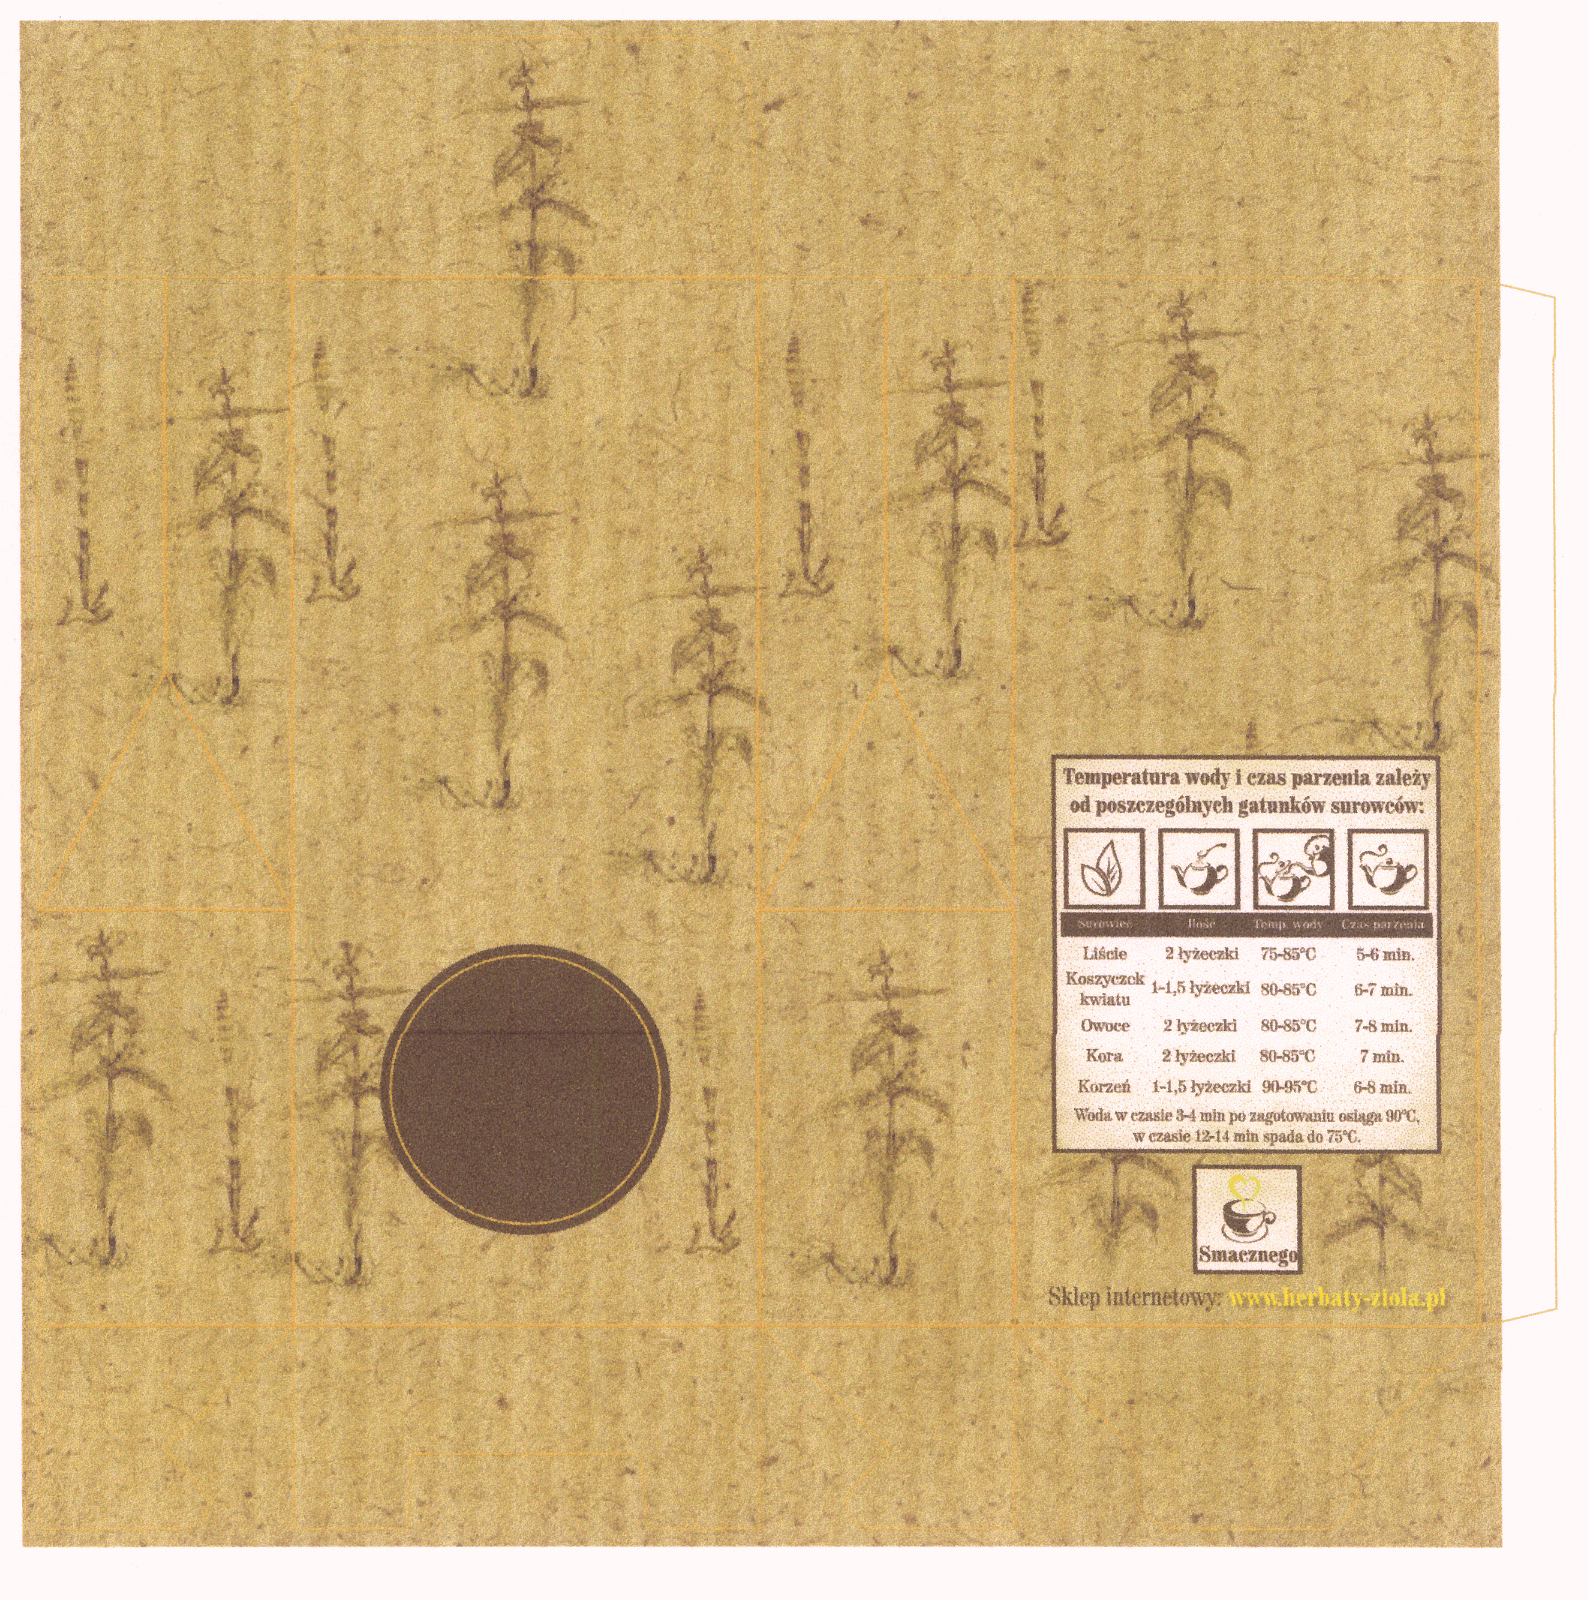 Temperatura wody i czas parzenia zależy
od poszczególnych gatunków surowców:
Surowiec Ilość Temp. wody Czas parzenia
Liście 2 łyżeczki 75-85°C 5-6 min.
Koszyczek
kwiatu 1-1,5 łyżeczki 80-85°C 6-7 min.
Owoce 2 łyżeczki 80-85°C 7-8 min.
Kora 2 łyżeczki 80-85°C 7 min.
Korzeń 1-1,5 łyżeczki 90-95°C 6-8 min.
Woda w czasie 3-4 min po zagotowaniu osiąga 90°C,
w czasie 12-14 min spada do 75°C.
Smacznego
Sklep internetowy: www.herbaty-ziola.pl